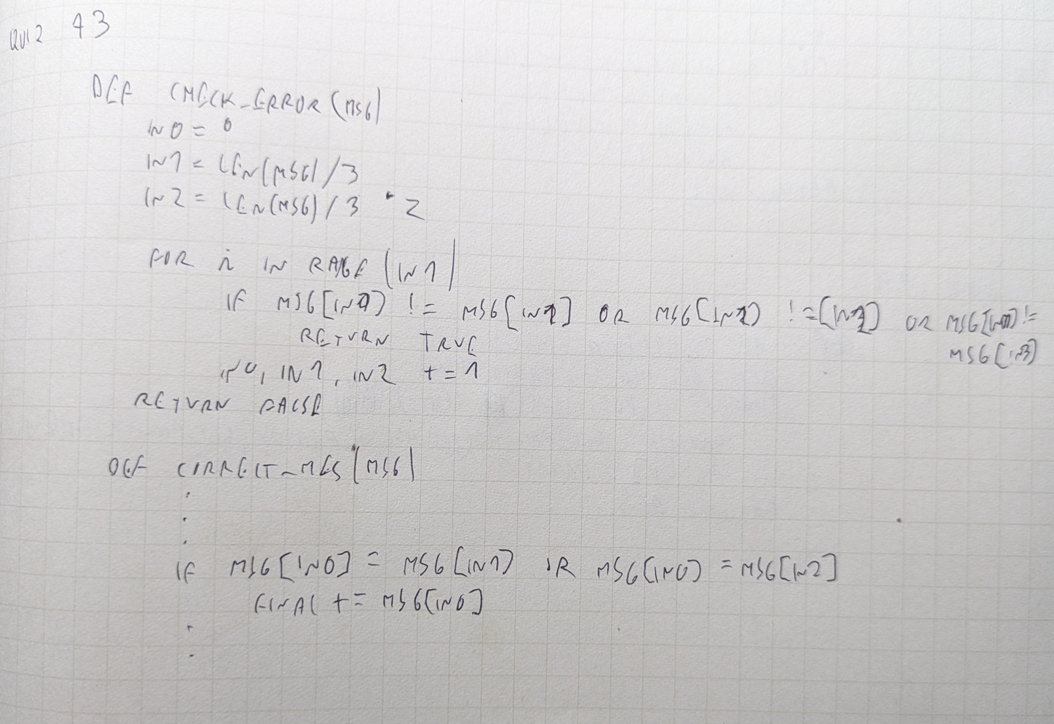 QUIZ 43
DEF CHECK_ERROR(MSG)
IN0 = 0
IN1 = LEN(MSG)/3
IN2 = LEN(MSG)/3 * 2
FOR i IN RANGE(IN1)
IF MSG[IN0] != MSG[IN1] OR MSG[IN1] != [IN2] OR MSG[IN0] !=
MSG[IN3]
RETURN TRUE
IN0, IN1, IN2 += 1
RETURN FALSE
DEF CORRECT_MES(MSG)
.
.
.
IF MSG[IN0] = MSG[IN1] OR MSG[IN0] = MSG[IN2]
FINAL += MSG[IN0]
.
.